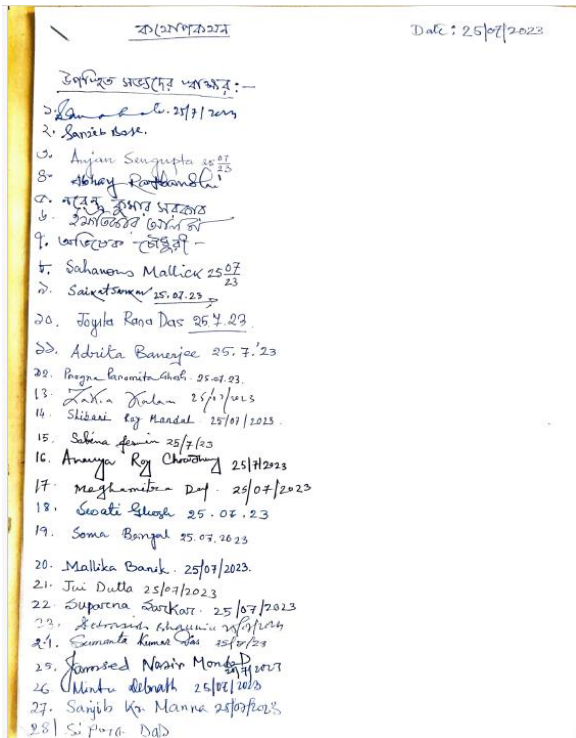 কথোপকথন
Date: 25/07/2023
উপস্থিত সভ্যদের স্বাক্ষর:-
১. 25/7/2023
২. Sanjib Bose.
৩. Anjan Sengupta 25 07/23
৪. Abhay Rajbanshi
৫. নরেন্দ্র কুমার সরকার
৬. ইমতিয়াজ
৭. অভিষেক চৌধুরী -
৮. Sahanous Mallick 25 07/23
৯. Saikat Sarkar 25.07.23
১০. Joyita Rana Das 25.7.23
১১. Adrita Banerjee 25.7.'23
১২. Progna Paromita Ghosh. 25.07.23.
13. Zakia Kalam 25/07/2023
14. Shibani Roy Mandal 25/07/2023.
15. Sabina 25/7/23
16. Ananya Roy Chowdhury 25/7/2023
17. Meghamitra Dey. 25/07/2023
18. Swati Ghosh 25.07.23
19. Soma Bangal 25.07.2023
20. Mallika Banik. 25/07/2023.
21. Jui Dutta 25/07/2023
22. Suparna Sarkar. 25/07/2023
23.
24. Sumanta Kumar Das 25/7/23
25. Jamsed Nasir Mondal 25/7/2023
26. Mintu Debnath 25/07/2023
27. Sanjib Kr. Manna 25/07/2023
28|